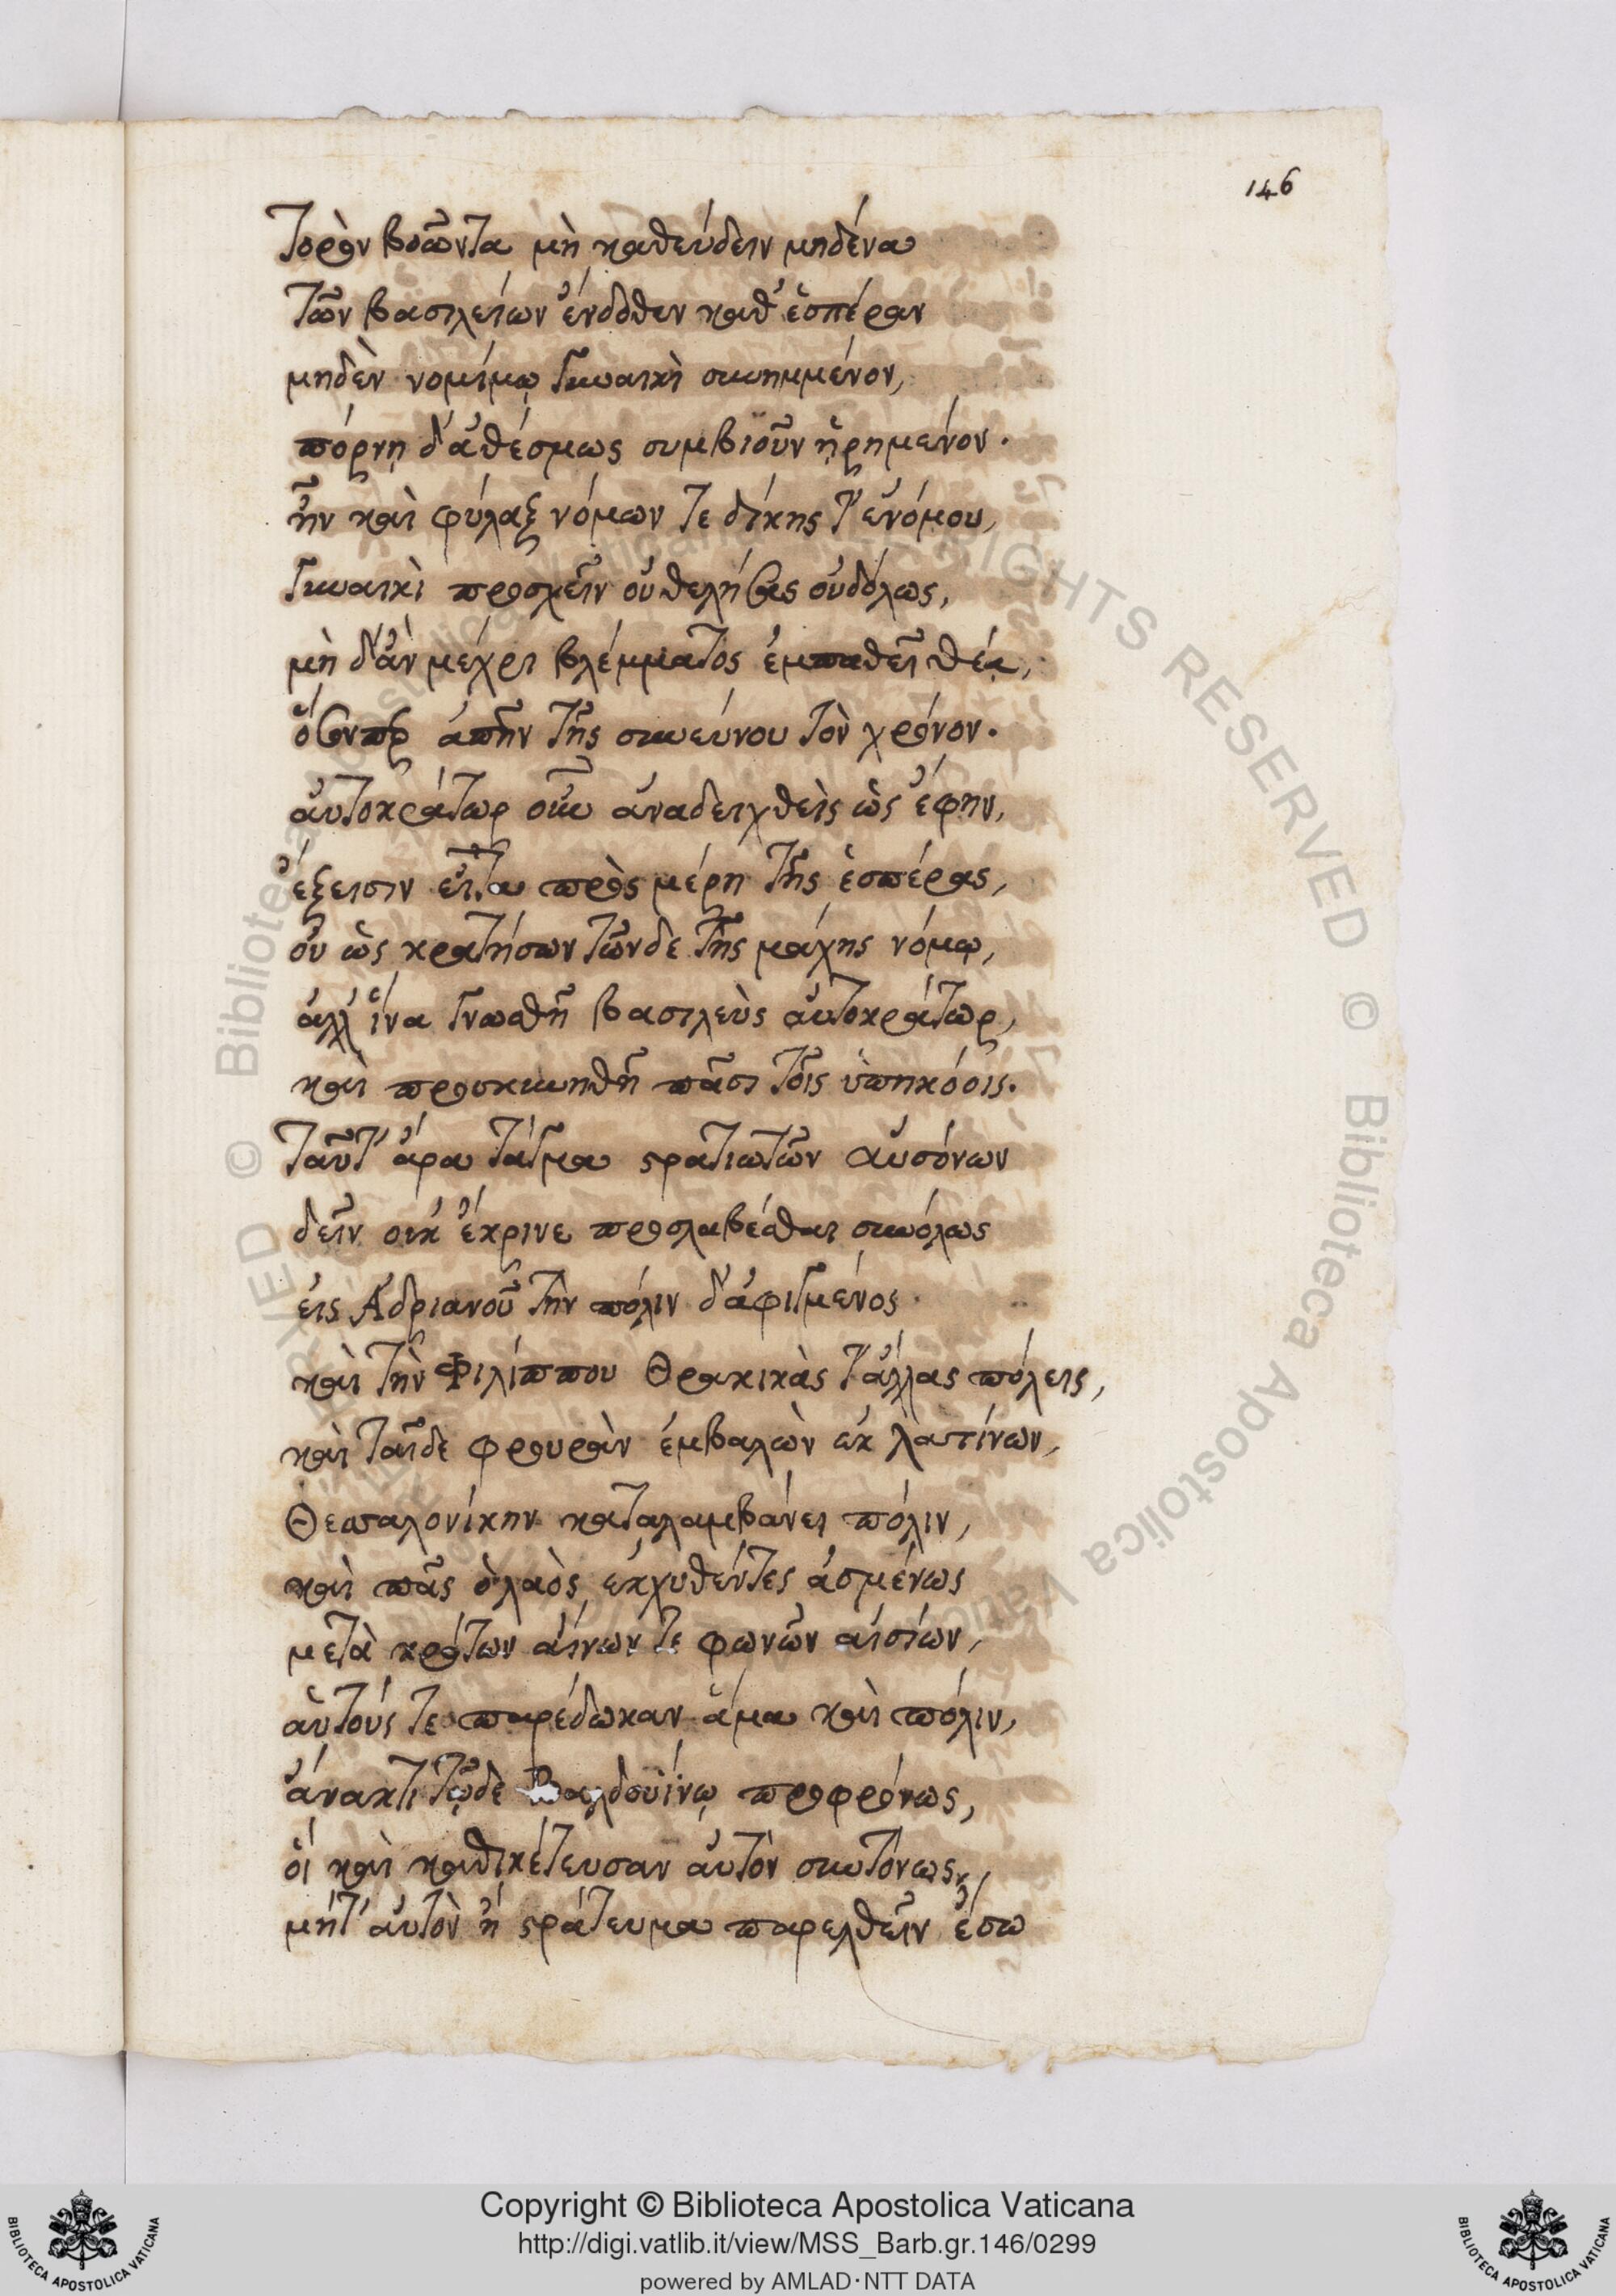 146
τορὸν βοῶντα μὴ καθεύδειν μηδένα
τῶν βασιλείων ἔνδοθεν καθ' ἑσπέραν
μηδὲν νομίμῳ γυναικὶ συνημμένον,
πόρνῃ δ' ἀθέσμως συμβιοῦν ᾑρημένον.
ἦν καὶ φύλαξ νόμων τε δίκης τ' εὐνόμου,
γυναικὶ προσχεῖν οὐ θελήσας οὐδόλως,
μὴ δ' ἂν μέχρι βλέμματος ἐμπαθεῖ θέᾳ,
ὅσονπερ ἀπῆν τῆς συνεύνου τὸν χρόνον.
αὐτοκράτωρ οὖν ἀναδειχθεὶς ὡς ἔφην,
ἔξεισιν εἶτα πρὸς μέρη τῆς ἑσπέρας,
οὐ ὡς κρατήσων τῶνδε τῆς μάχης νόμῳ,
ἀλλ' ἵνα γνωσθῇ βασιλεὺς αὐτοκράτωρ,
καὶ προσκυνηθῇ πᾶσι τοῖς ὑπηκόοις.
Ταῦτ' ἄρα τάγμα στρατιωτῶν αὐσόνων
δεῖν οὐκ ἔκρινε προσλαβέσθαι συνόλως
εἰς Ἀδριανοῦ τὴν πόλιν δ' ἀφιγμένος
καὶ τὴν Φιλίππου Θρακικὰς τ' ἄλλας πόλεις,
καὶ ταῖσδε φρουρὰν ἐμβαλὼν ἐκ λατίνων,
Θεσσαλονίκην καταλαμβάνει πόλιν,
καὶ πᾶς ὁ λαὸς ἐκχυθέντες ἀσμένως
μετὰ κρότων αἴνων τε φωνῶν αἰσίων,
αὑτούς τε παρέδωκαν ἅμα καὶ πόλιν,
ἄνακτι τῷδε Βαλδουΐνῳ προφρόνως,
οἳ καὶ καθικέτευσαν αὐτὸν συντόνως,
μήτ' αὐτὸν ἢ στράτευμα παρελθεῖν ἔσω
Copyright © Biblioteca Apostolica Vaticana
http://digi.vatlib.it/view/MSS_Barb.gr.146/0299
powered by AMLAD·NTT DATA
BIBLIOTECA APOSTOLICA VATICANA
BIBLIOTECA APOSTOLICA VATICANA